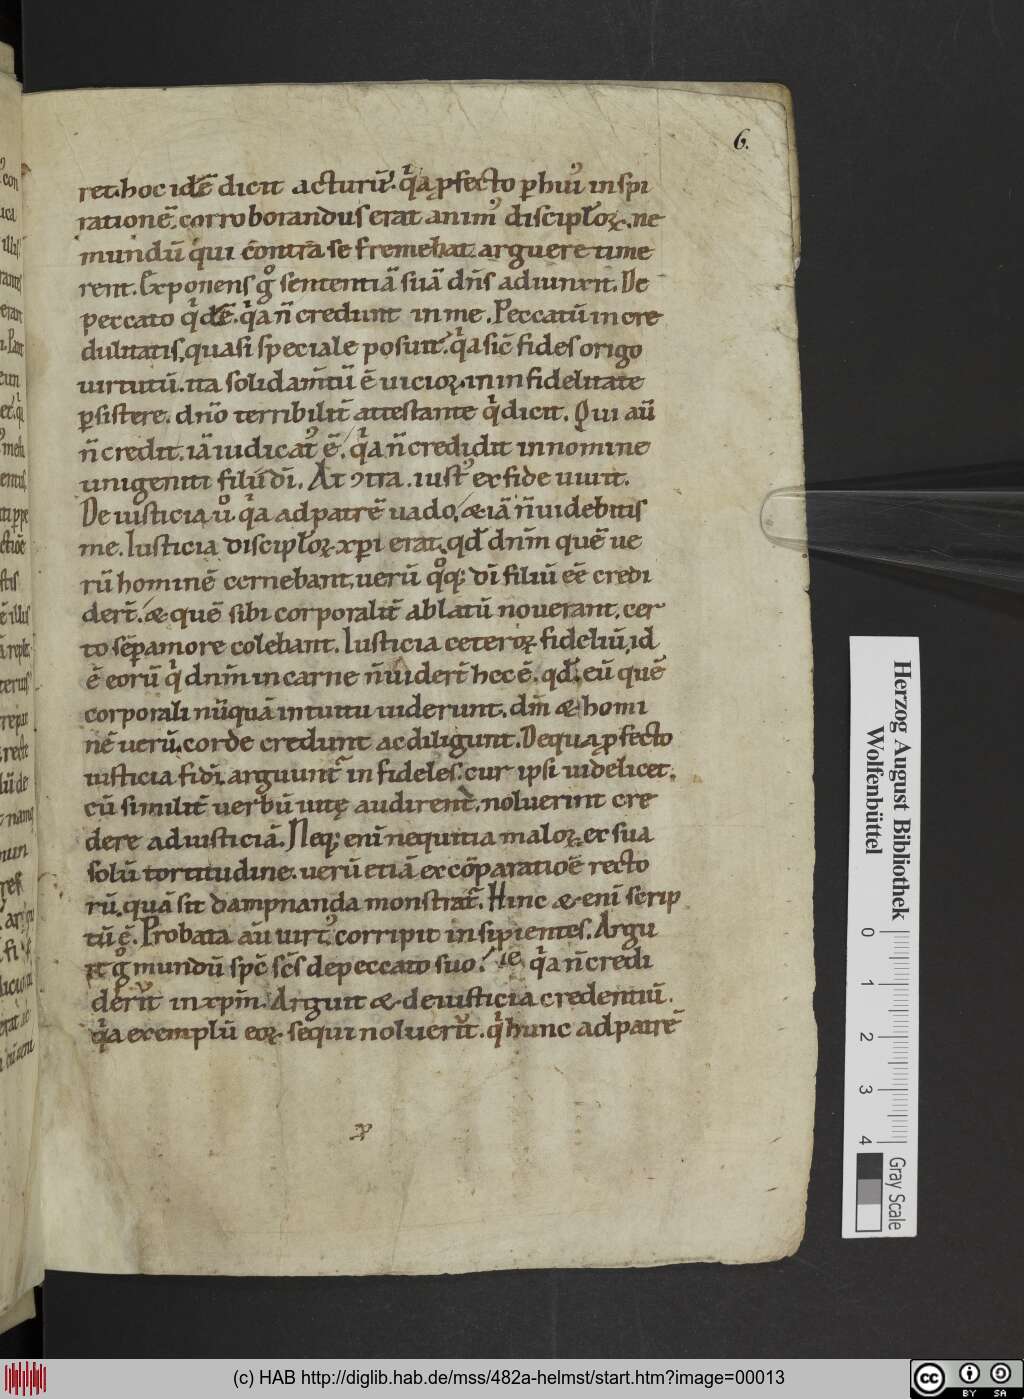 6.
ret. hoc idē dicit acturū. q̓a ꝓfecto ꝑ huiꝰ inspi
rationē. corroborandus erat animꝰ discipl'oꝝ. ne
mundū qui contra se fremebat arguere time
rent. Exponens gͦ sententiā suā dn̄s adiunxit. De
peccato q̓dē. q̓a n̄ credunt in me. Peccatū incre
dulitatis. quasi speciale posuit. q̓a sic̄ fides origo
uirtutū. ita solidam̄tū ē uicioꝝ. in infidelitate
ꝑsistere. dn̄o terribilit̄ attestante q̓ dicit. Qui au̅
n̄ credit. iā iudicatꝰ ē. q̓a n̄ credidit in nomine
unigeniti filii dī. At ↄtra. iustꝰ ex fide uiuit.
De iusticia uͦ. q̓a ad patrē uado. & iā n̄ uidebitis
me. Iusticia discipl'oꝝ xp̄i erat. qd̄ dn̄m quē ue
rū hominē cernebant. uerū qͦq; dī filiū eē credi
dert̄. & quē sibi corporalit̄ ablatū nouerant. cer
to sēꝑ amore colebant. Iusticia ceteroꝝ fideliū. id
ē eorū q̓ dn̄m in carne n̄ uidert̄ hec ē. qd̄ eū quē
corporali nūquā intuitu uiderunt. dm̄ & homi
nē uerū. corde credunt ac diligunt. De qua ꝓfecto
iusticia fidī. arguunt̄ infideles. cur ipsi uidelicet.
cū similit̄ uerbū uitę audirent. noluerint cre
dere ad iusticiā. Neq; enī nequitia maloꝝ. ex sua
solū tortitudine. uerū etiā ex cōparatioē recto
rū. quā sit dampnanda monstrat̄. Hinc & enī scrip
tū ē. Probata au̅ uirtꝰ. corripit insipientes. Argu
it gͦ mundū spc̄ sc̄s de peccato suo. q̓a n̄ credi
derūt in xp̄m. Arguit & de iusticia credentiū.
q̓a exemplū eoꝝ sequi noluerūt. q̓ hunc ad patrē
Herzog August Bibliothek
Wolfenbüttel
0 1 2 3 4
Gray Scale
(c) HAB http://diglib.hab.de/mss/482a-helmst/start.htm?image=00013
cc BY SA